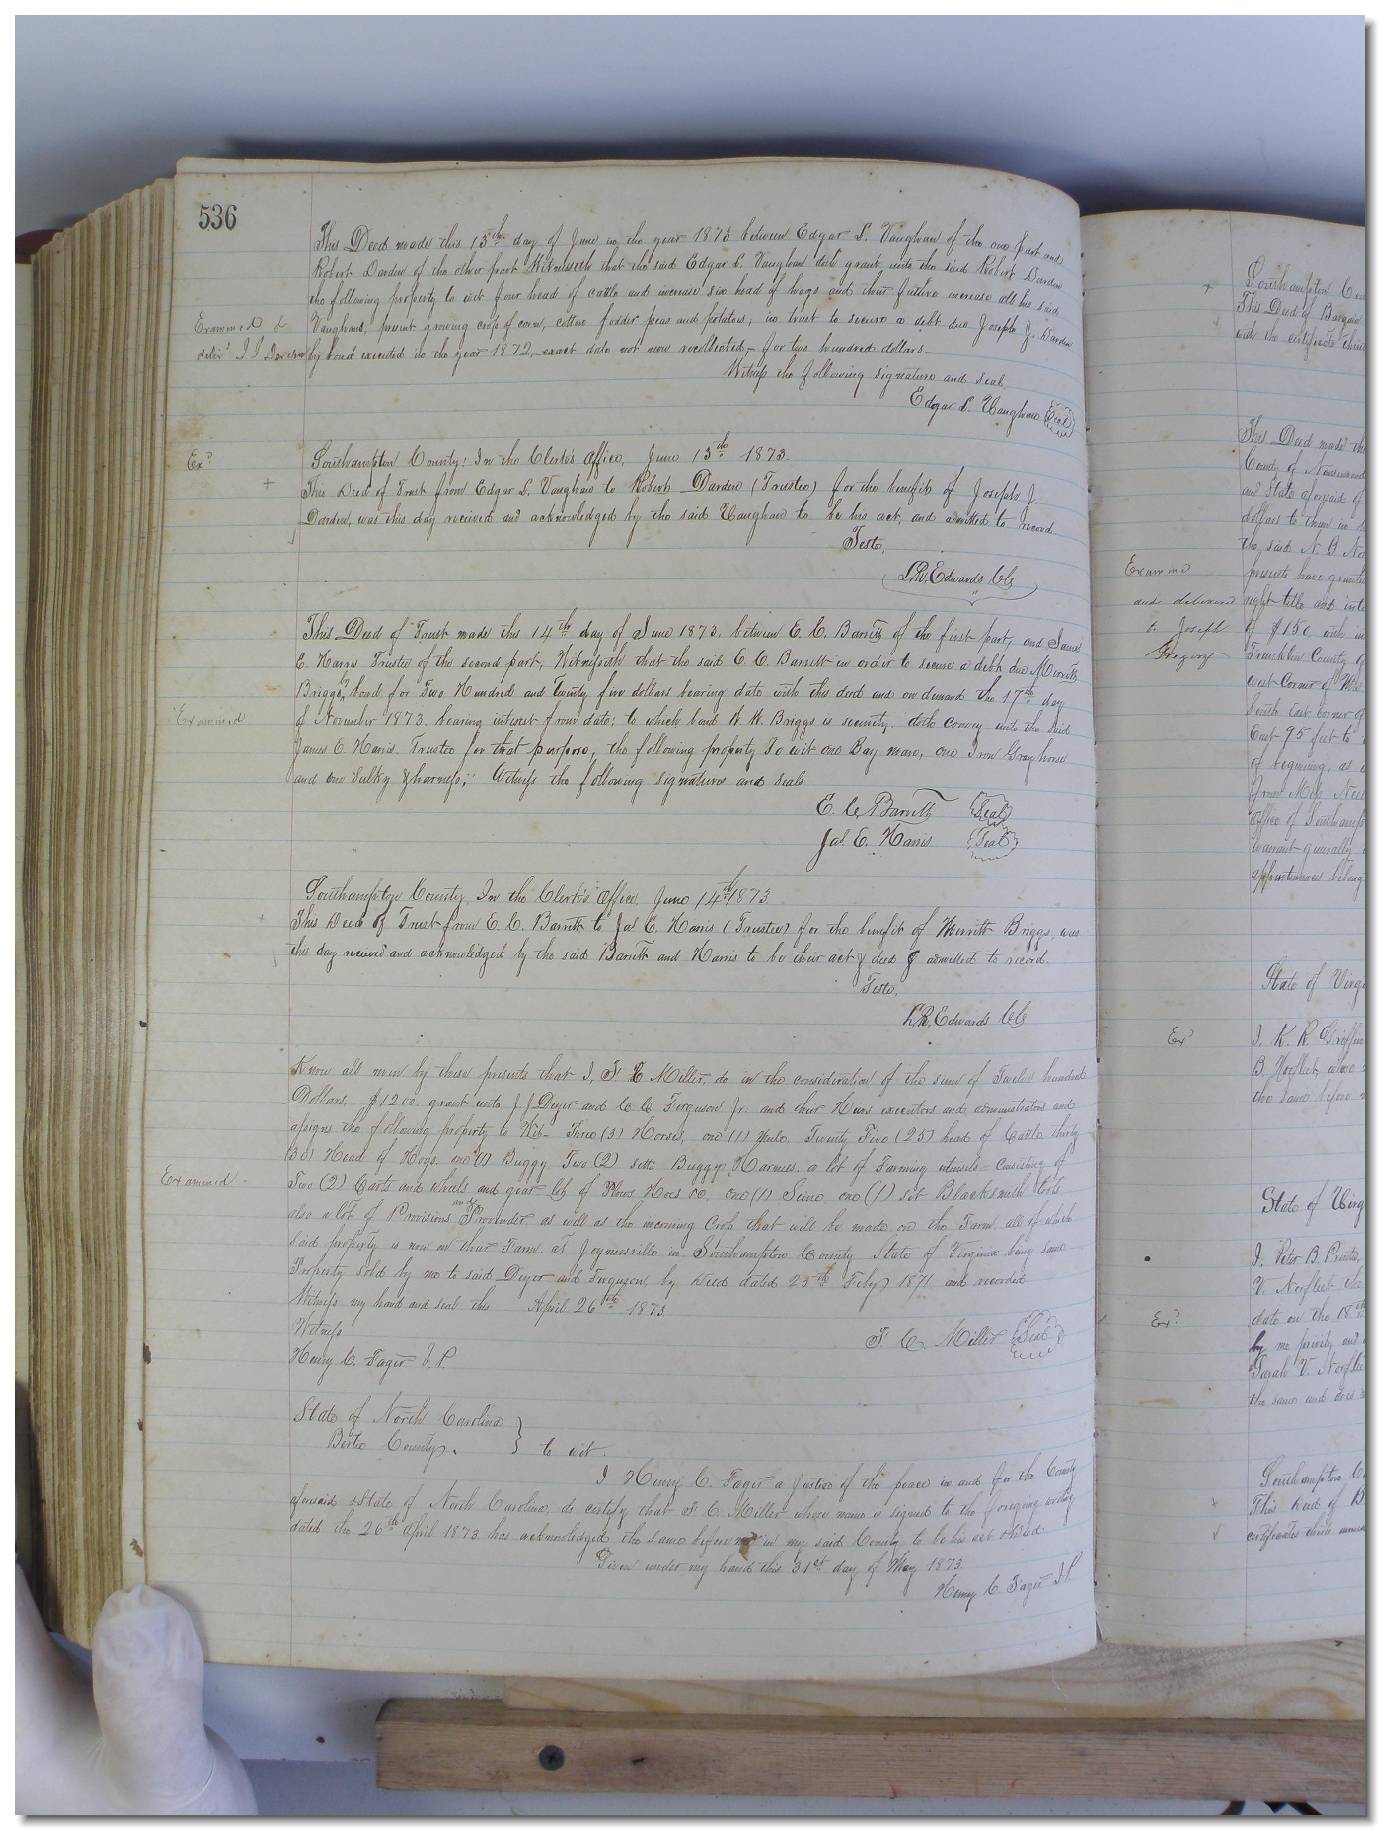 536
This Deed made this 13th day of June in the year 1873 between Edgar S. Vaughan of the one part and
Robert Darden of the other part Witnesseth that the said Edgar S. Vaughan doth grant unto the said Robert Darden
the following property to wit four head of cattle and increase six head of hogs and their future increase all his said
Vaughans, present growing crop of corn, cotton fodder peas and potatoes, in trust to secure a debt due Joseph J. Darden
by bond executed in the year 1872, exact date not now recollected, for two hundred dollars.
Witness the following signature and seal,
Edgar S. Vaughan Seal
Examined &
deliv'd J J Darden
Exd
Southampton County: In the Clerk's Office, June 13th 1873.
+ This Deed of Trust from Edgar S. Vaughan to Robert Darden (Trustee) for the benefit of Joseph J.
Darden, was this day received and acknowledged by the said Vaughan to be his act, and admitted to record.
Teste,
L.R. Edwards Clk
This Deed of Trust made this 14th day of June 1873, between E. C. Barrett of the first part, and James
E. Harris Trustee of the second part, Witnesseth that the said E. C. Barrett in order to secure a debt due Merritt
Briggs, by bond for Two Hundred and Twenty five dollars bearing date with this deed and on demand the 17th day
of November 1873. bearing interest from date; to which bond W. W. Briggs is security, doth convey unto the said
James E. Harris, Trustee for that purpose, the following property To wit one Bay mare, one Iron Gray horse
and one Sulky & harness; Witness the following signatures and seals
E. C. Barrett Seal
Jas. E. Harris Seal
Examined
Southampton County, In the Clerk's Office, June 14th 1873.
This Deed of Trust from E. C. Barrett to Jas E. Harris (Trustee) for the benefit of Merritt Briggs, was
this day received and acknowledged by the said Barrett and Harris to be their act & deed & admitted to record.
Teste,
L.R. Edwards Clk
Know all men by these presents that I, S. C. Miller, do in the consideration of the sum of Twelve hundred
Dollars, $1200 grant unto J. J. Dyer and C. C. Ferguson Jr. and their Heirs executors and administrators and
assigns the following property to Wit— Three (3) Horses, one (1) Mule, Twenty Five (25) head of Cattle thirty
(30) Head of Hogs. one (1) Buggy Two (2) setts Buggy Harness. a lot of Farming utensils consisting of
Two (2) Carts and wheels and gear lot of Plows Hoes &c. one (1) Seine one (1) set Blacksmith tools
also a lot of Provisions and Provender as well as the incoming Crop that will be made on the Farm. all of which
said property is now on their Farm at Joynersville in Southampton County State of Virginia being same
Property sold by me to said Dyer and Ferguson, by Deed dated 25th Feby 1871 and recorded
Witness my hand and seal this April 26th 1873
Witness
S. C. Miller Seal
Henry C. J.P.
Examined
State of North Carolina
Bertie County. } to wit.
I Henry C. a Justice of the peace in and for the County
aforesaid & State of North Carolina, do certify that S. C. Miller whose name is signed to the foregoing writing
dated the 26th April 1873 has acknowledged the same before me in my said County to be his act & deed
Given under my hand this 31st day of May 1873.
Henry C. J.P.
+ Southampton
This Deed of Bargain
with the certificate
This Deed made
County of Nansemond
and State aforesaid of
dollars to them in
the said N. B.
presents have granted
right title and
of $150 with
Franklin County
west corner of
South East corner
East 95 feet to
of beginning, as
from
office of Southampton
warrant generally
appurtenances belong
Examined
and delivered
to Joseph
Gregory
State of Virg
Ex'd
I, K. R. Griffin
B. Norfleet, whose
the same before
State of Virg
I, Peter B.
V. Norfleet
date on the 18th
by me privily and
Sarah V. Norfleet
the same and does
Exd
Southampton
This Deed of B
certificates